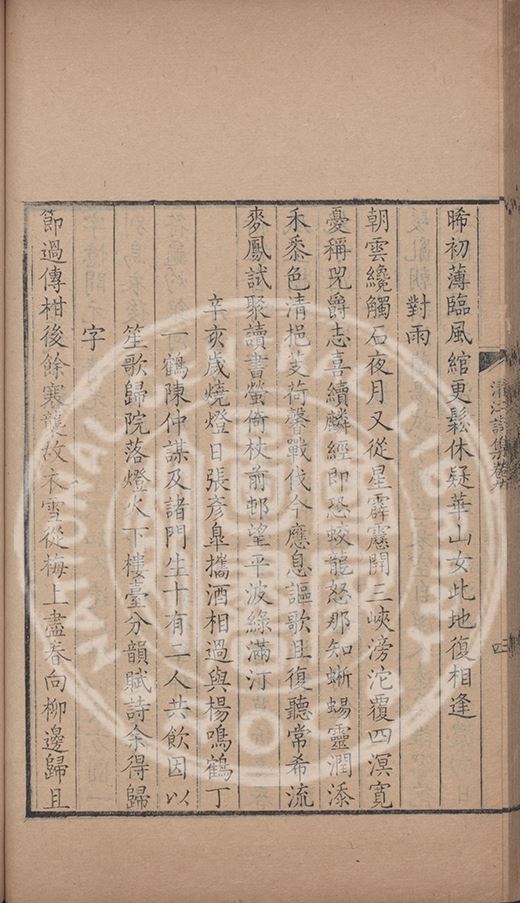 晞初薄臨風綰更鬆休疑華山女此地復相逢
對雨
朝雲纔觸石夜月又從星霹靂開三峽滂沱覆四溟寬
憂稱兕爵志喜續麟經即恐蛟龍怒那知蜥蜴靈潤添
禾黍色清挹芰荷馨戰伐今應息謳歌且復聽常希流
麥鳳試聚讀書螢倚杖前邨望平波綠滿汀
辛亥歲燒燈日張彥臯攜酒相過與楊鳴鶴丁
一鶴陳仲謀及諸門生十有二人共飲因以
笙歌歸院落燈火下樓臺分韻賦詩余得歸
字
節過傳柑後餘寒襲故衣雪從梅上盡春向柳邊歸且
清江詩集卷
四